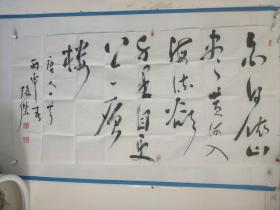 白日依山
尽黄河入
海流欲
穷千里目更
上一层
楼
唐人一首
丙申春